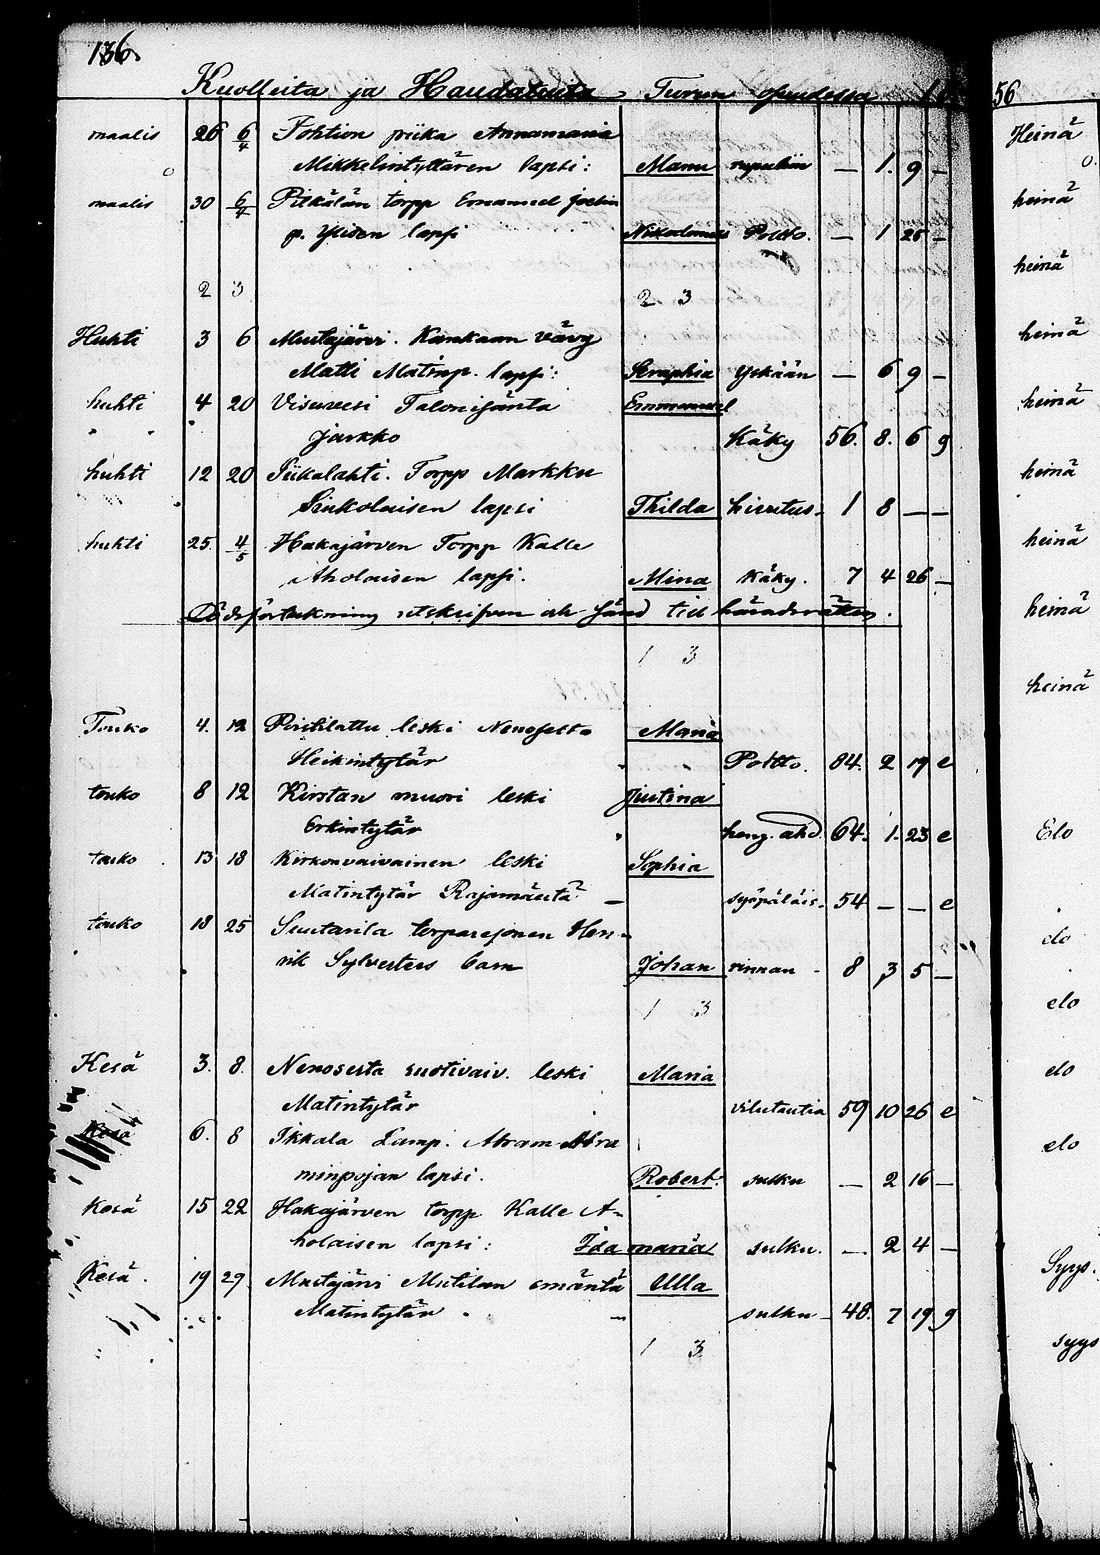 136.
Kuolleita ja Haudatuita Turun
maalis 26 6/4 piika Annamaria
Mikkelintyttären lapsi: Manu — 1. 9 —
maalis 30 6/4 torpp Emanuel
p. lapsi Poltto. — 1 25 —
2 3 2 3
Huhti 3 6 Mustajärvi. Kankaan vävy
Matti Matinp. lapsi: Seraphia Yskään — 6 9 —
huhti 4 20 Visuvesi Talonisäntä Emmanuel
Jarkko Käky 56. 8. 6 g
huhti 12 20 Siikalahti. Torpp Markku
lapsi Thilda 1 8 — —
huhti 25. 4/5 Hakajärven Torpp Kalle
Aholaisen lapsi. Mina Käky. 7 4 26 —
till häradsrätten.
1 3
Touko 4. 12 leski Maria
Heikintytär Poltto. 84. 2 19 e
touko 8 12 Kirstan muori leski Justina
Erkintytär heng. ahd. 64. 1. 23 e
touko 13 18 Kirkonvaivainen leski Sophia
Matintytär Rajamäeltä — syöpäläis. 54 — — e
touko 18 25 Suutarila Hen-
rik Sylvesters barn Johan rinnan 8 3 5 —
1 3
Kesä 3. 8. ruotivaiv. leski Maria
Matintytär vilutautia 59 10 26 e
Kesä 6. 8 Ikkala Lamp. Abram Abra
minpojan lapsi. Robert. sulku — 2 16 —
Kesä 15 22 Hakajärven torpp Kalle A-
holaisen lapsi: Ida maria sulku. — 2 4 —
Kesä. 19 29. Mustajärvi Mutilan emäntä Ulla
Matintytär — sulku — 48. 7 19 g
1 3
56
Heinä
heinä
heinä
heinä
heinä
heinä
heinä
heinä
heinä
Elo
elo
elo
elo
elo
Syys.
syys